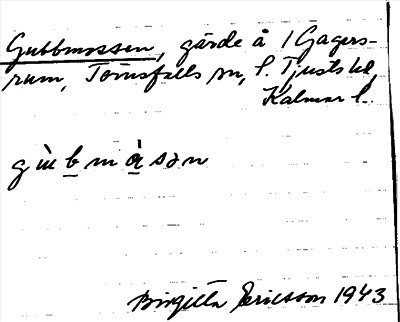 Gubbmossen, gärde å 1 Gagers-
rum, Törnsfalls sn, S. Tjusts hd,
Kalmar l.
gùbmòsən
Birgitta Ericsson 1943